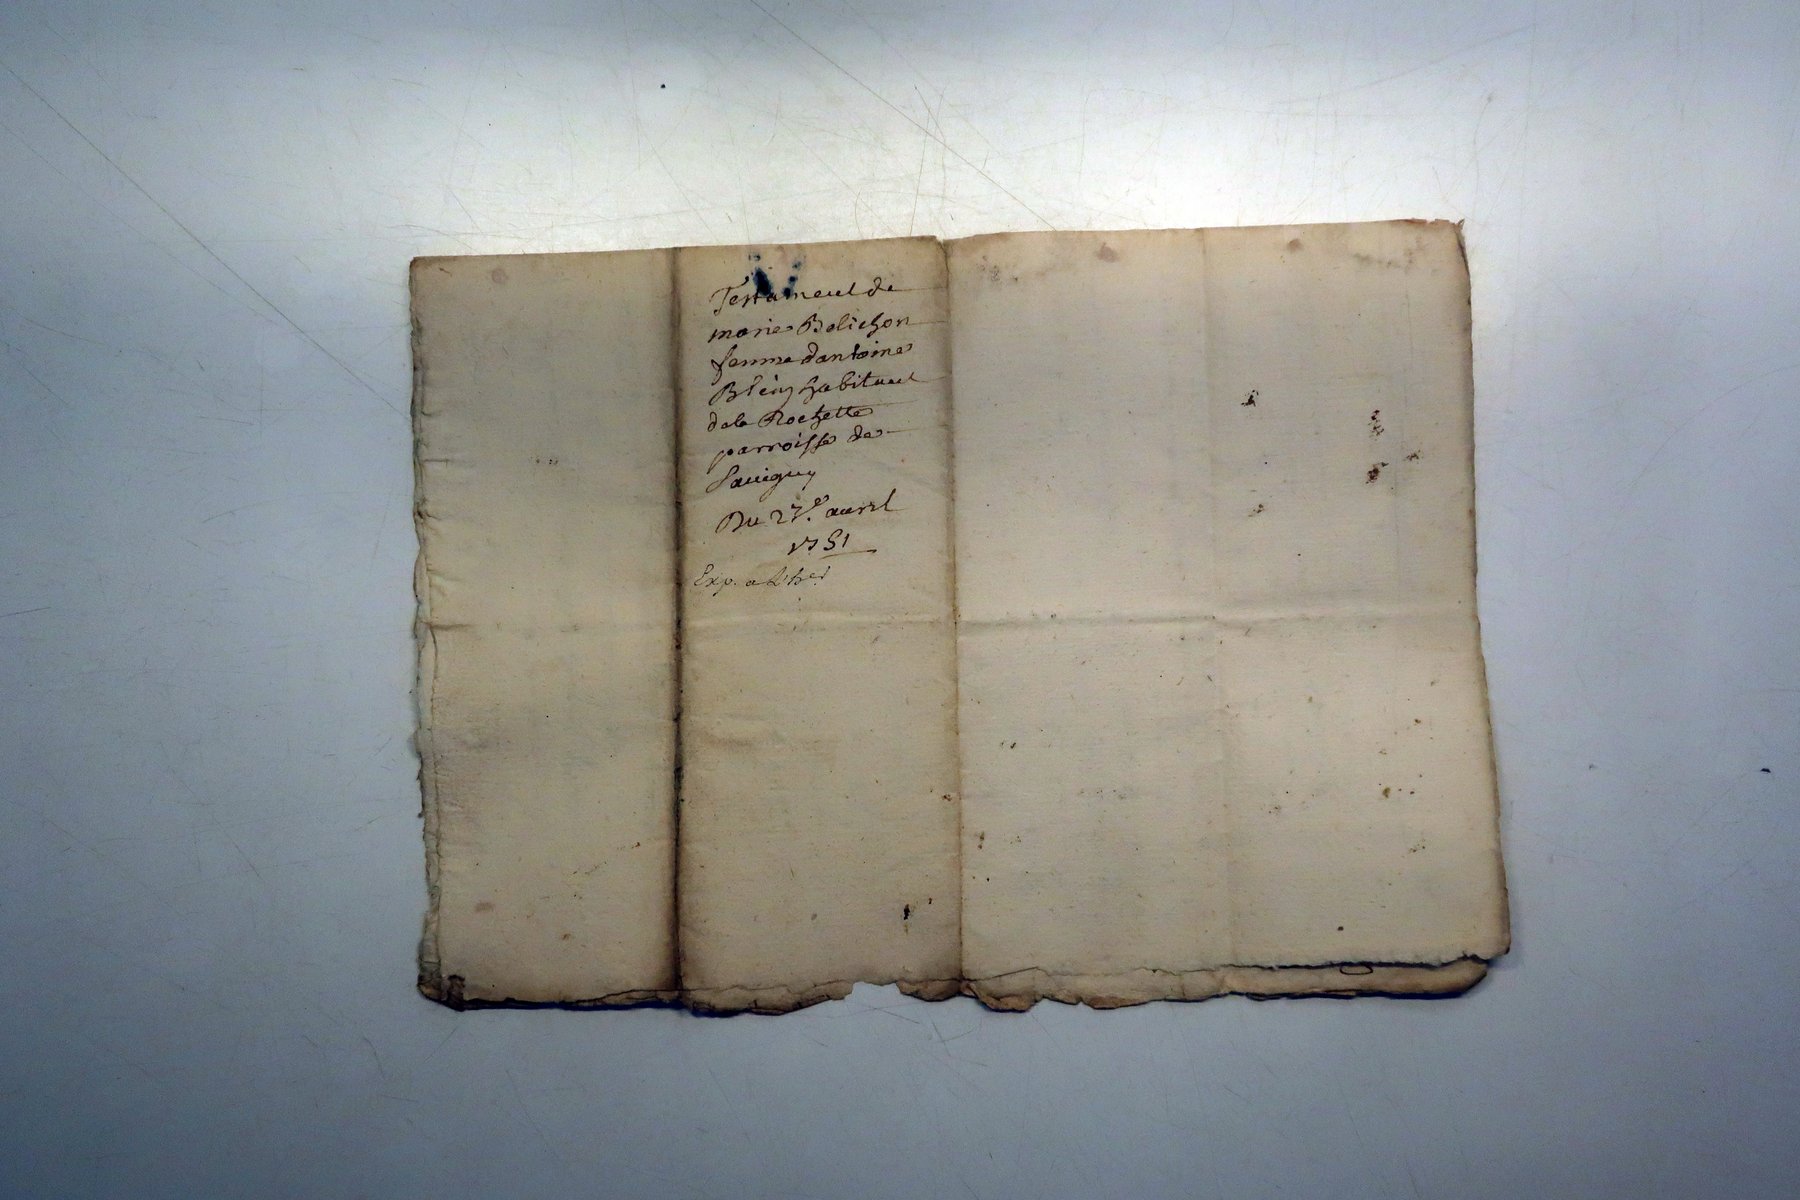 Testament de
marie Belichon
femme dantoine
habitant
dela Rochette
parroisse de
Sauigny
Du 27e. auril
1751
Exp. a